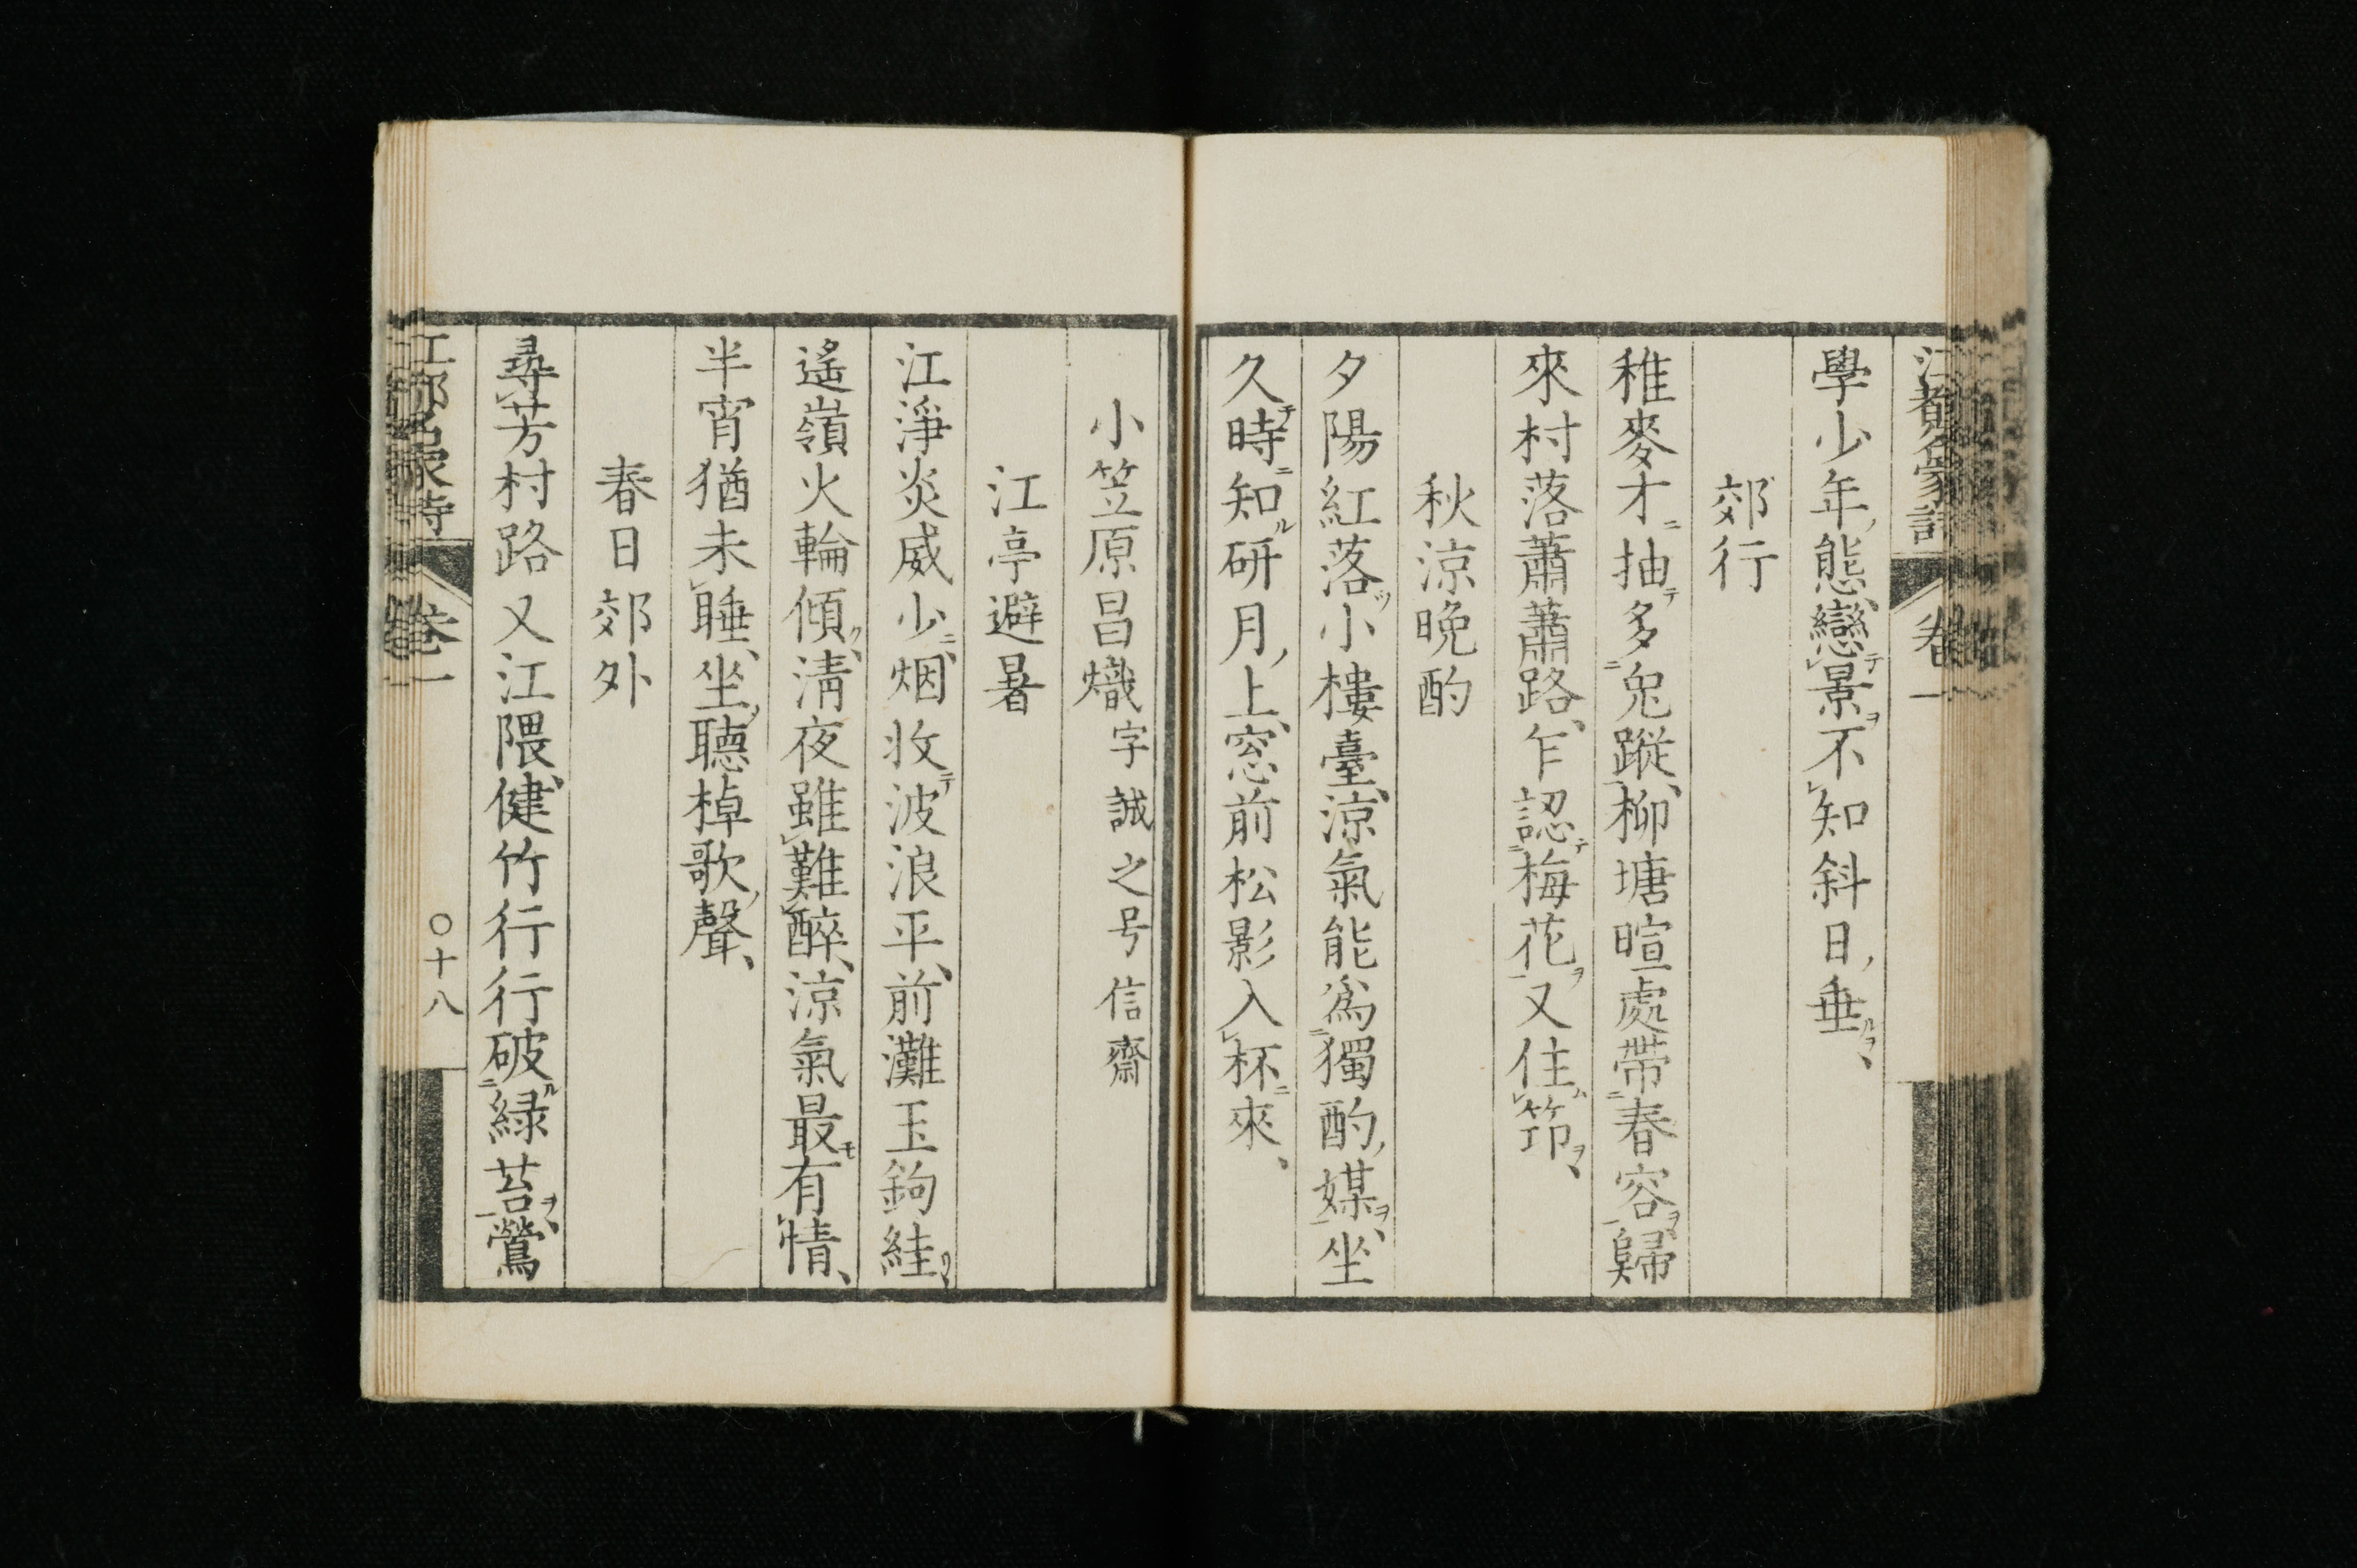 學少年態戀景不知斜日垂
郊行
稚麥才抽多兎蹤柳塘暄處帶春容歸
來村落蕭蕭路乍認梅花又住笻
秋涼晩酌
夕陽紅落小樓臺涼氣能爲獨酌媒坐
久時知研月上窓前松影入杯來
小笠原昌熾字誠之号信齋
江亭避暑
江淨炎威少烟收波浪平前灘玉鉤絓
遙嶺火輪傾淸夜雖難醉涼氣最有情
半宵猶未睡坐聽棹歌聲
春日郊外
尋芳村路又江隈健竹行行破緑苔鶯
江都名家詩 卷一 〇十八